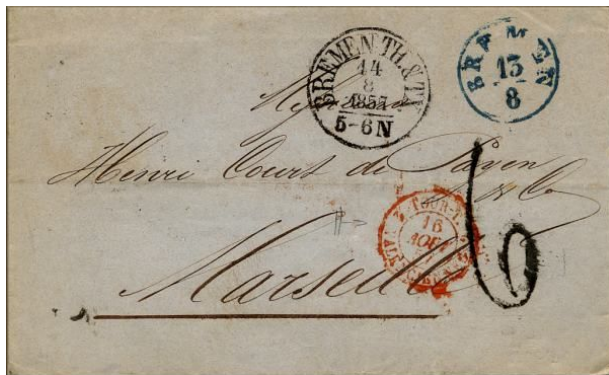 BREMEN TH. & TX.
14
8
1857
5-6 N
BRAKE
13
8
Henri Court de Payen
& Co
16
AOUT
Marseille
6